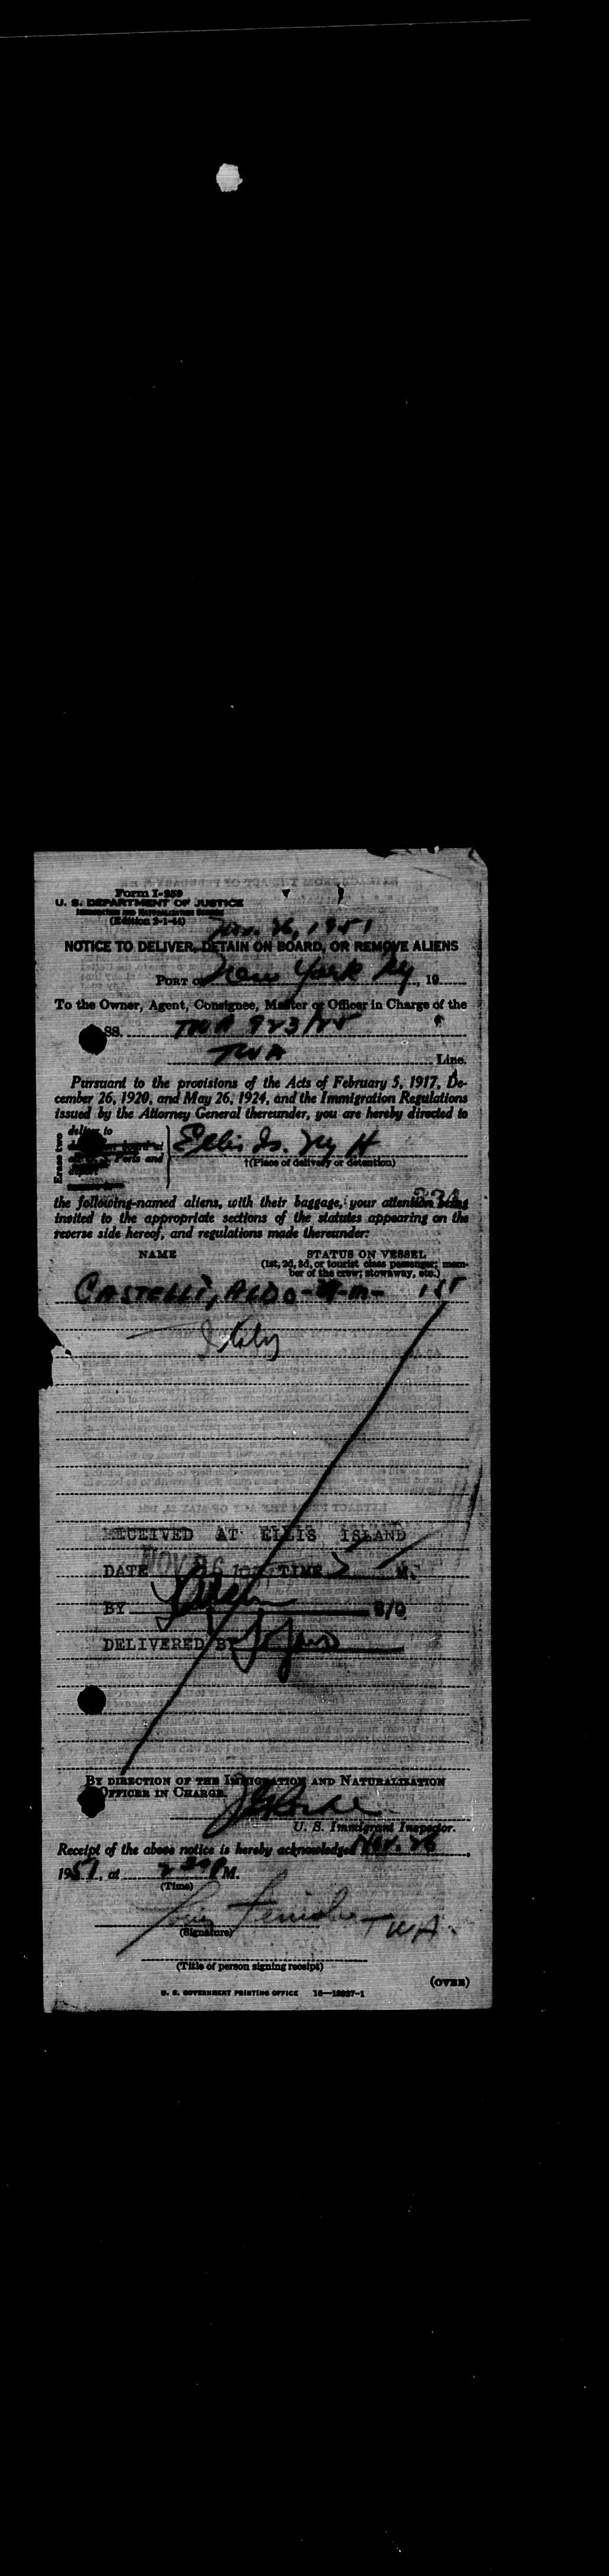 Form I-259
U. S. DEPARTMENT OF JUSTICE
IMMIGRATION AND NATURALIZATION SERVICE
(Edition 2-1-44)
Nov. 26, 1951
NOTICE TO DELIVER, DETAIN ON BOARD, OR REMOVE ALIENS
PORT OF New York NY, 19
To the Owner, Agent, Consignee, Master or Officer in Charge of the
SS. TWA 923/25
TWA Line.
Pursuant to the provisions of the Acts of February 5, 1917, De-
cember 26, 1920, and May 26, 1924, and the Immigration Regulations
issued by the Attorney General thereunder, you are hereby directed to
Erase two
deliver to
Ports and
Ellis Is. NY H
†(Place of delivery or detention)
the following-named aliens, with their baggage, your attention being
invited to the appropriate sections of the statutes appearing on the
reverse side hereof, and regulations made thereunder:
NAME STATUS ON VESSEL
(1st, 2d, 3d, or tourist class passenger; mem-
ber of the crew; stowaway, etc.)
CASTELLI, ALDO
Italy
RECEIVED AT ELLIS ISLAND
DATE NOV 26 TIME M.
BY S/O
DELIVERED BY
BY DIRECTION OF THE IMMIGRATION AND NATURALIZATION
OFFICER IN CHARGE.
U. S. Immigrant Inspector.
Receipt of the above notice is hereby acknowledged Nov. 26,
1951, at 2 30 P M.
(Time)
TWA.
(Signature)
(Title of person signing receipt)
(OVER)
U. S. GOVERNMENT PRINTING OFFICE 16—13297-1